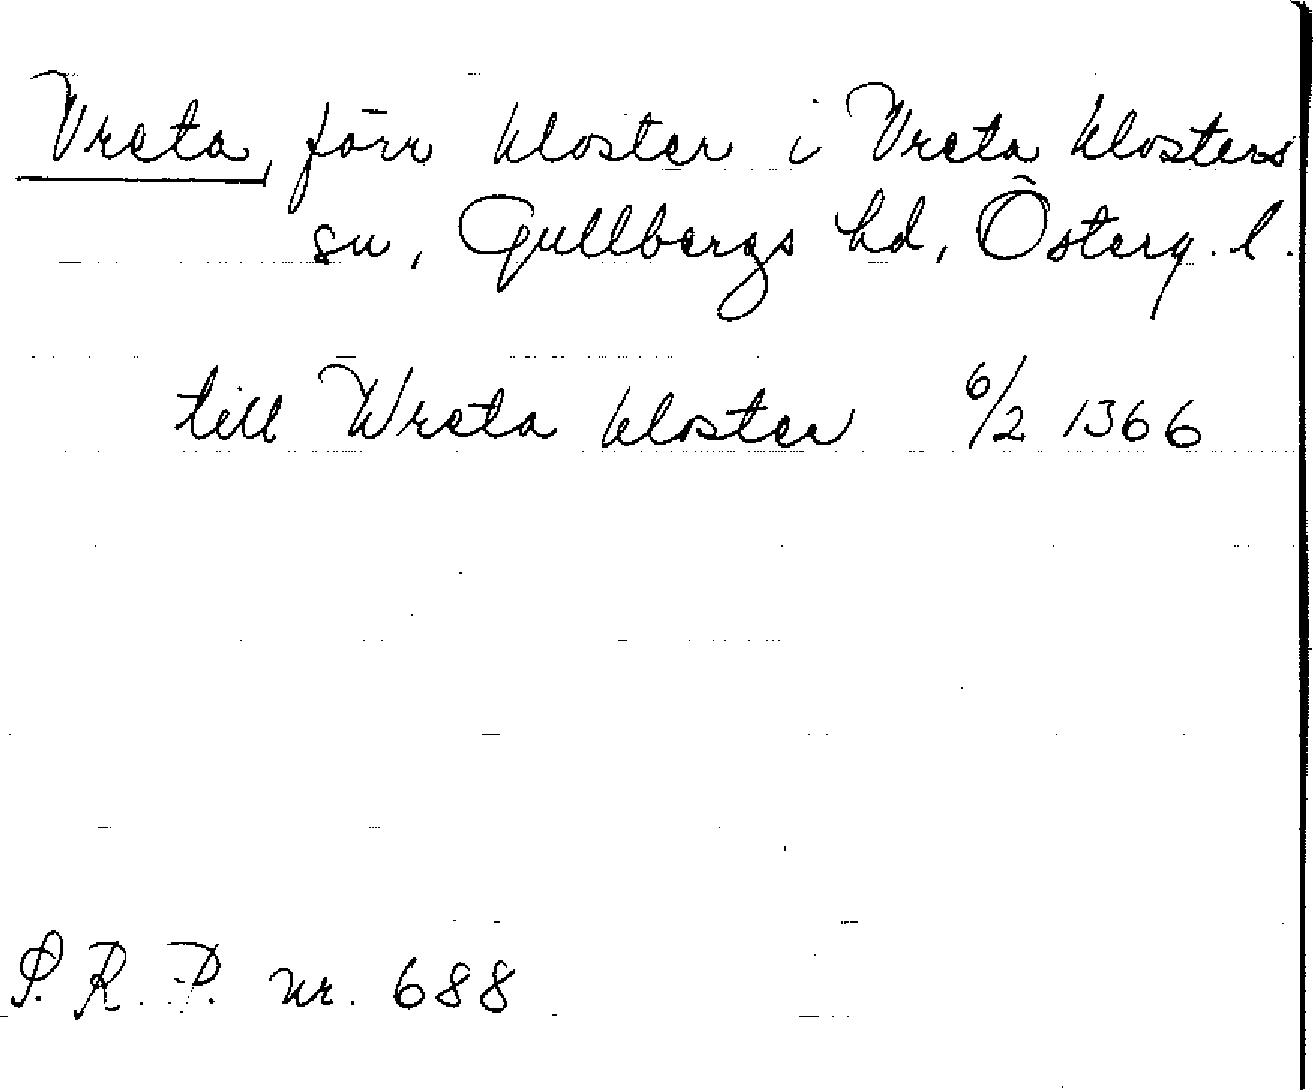 Vreta, förr kloster i Vreta klosters
sn, Gullbergs hd, Österg. l.
till Wreta kloster 6/2 1366
S. R. P. nr. 688